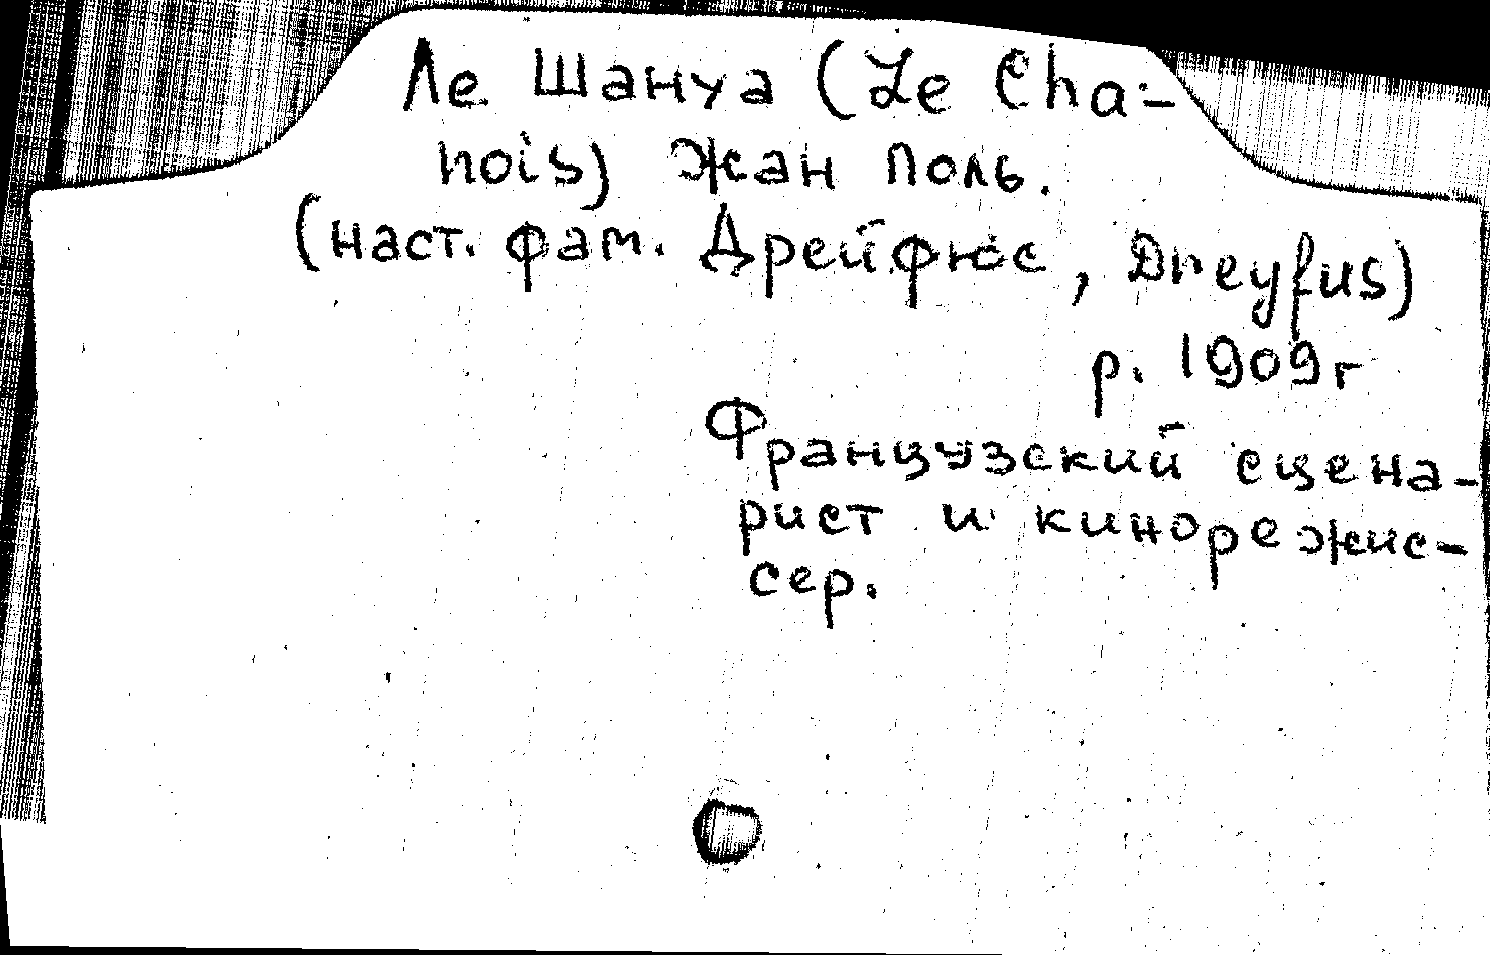 Ле Шануа (Le Cha-
nois) Жан Поль.
(наст. фам. Дрейфюс, Dreyfus)
р. 1909г
Французский сцена-
рист и кинорежис-
сер.